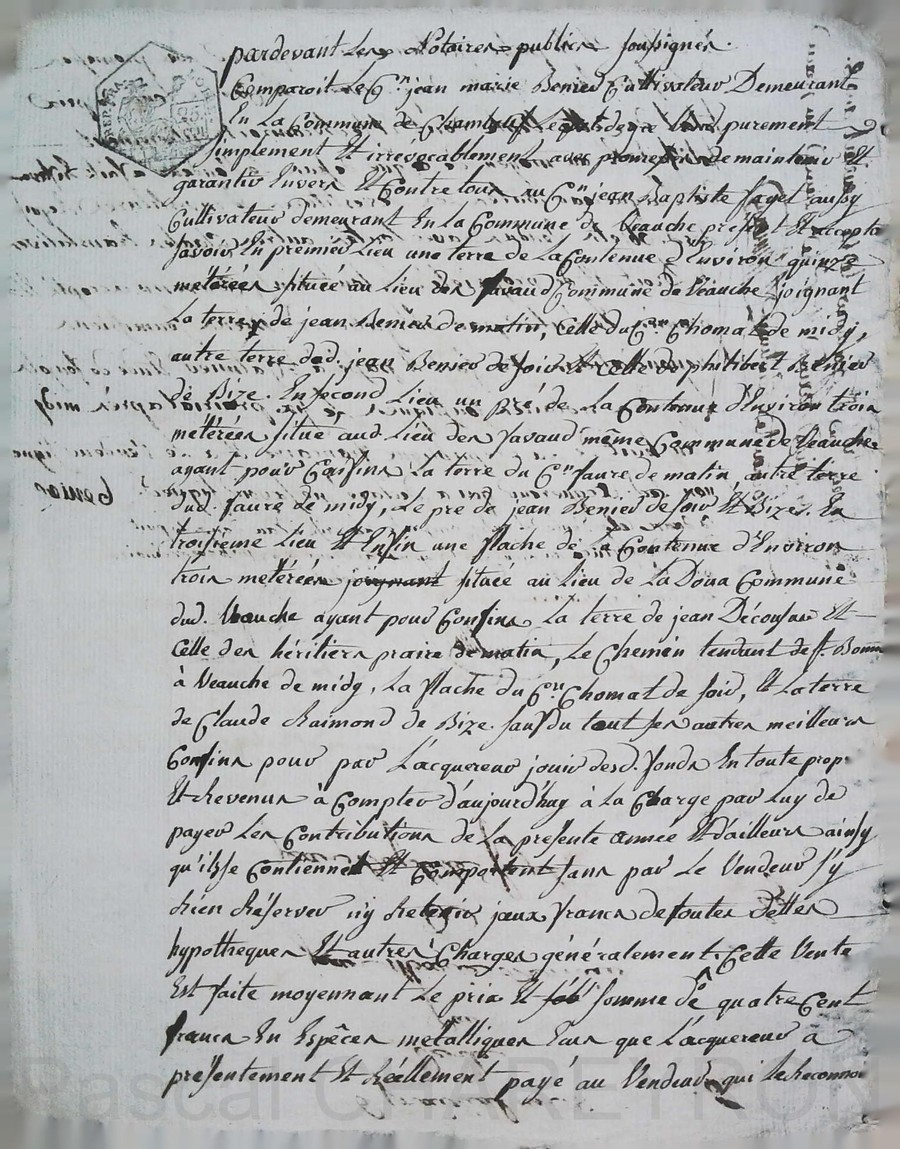 pardevant Les Notaires publics soussignés.
Comparoit Le C.en jean marie Benier Cultivateur Demeurant
En La Commune de Lequel vend purement
simplement Et irrévocablement avec promesse de maintenir Et
garantir Envers Et Contre tous au C.en jean Baptiste faget aussy
Cultivateur demeurant En la Commune de Veauche présent Et accepta
savoir En premier Lieu une terre de La Contenue d'Environ quinze
metérées située au Lieu des favaud Commune de Veauche joignant
La terre de jean Benier de matin, Celle du C.en Chomat de midy,
autre terre dud. jean Benier de soir Et celle de philibert Benier
de Bize. En second Lieu un pré de La Contenue d'Environ trois
metérées situé aud. Lieu des favaud même Commune de Veauche
ayant pour Confins La terre du C.en faure de matin, autre terre
dud. faure de midy, Le pré de jean Benier de soir Et Bize. En
troisieme Lieu Et Enfin une flache de La Contenue d'Environ
trois metérées joignant située au Lieu de La Doua Commune
dud. Veauche ayant pour Confins La terre de jean Décousus Et
Celle des héritiers praire de matin, Le Chemin tendant de S.t Bonn
à Veauche de midy, La flache du C.en Chomat de soir, Et La terre
de Claude Raimond de Bize. sauf du tout ses autres meilleurs
Confins pour par L'acquereur jouir desd. fonds En toute prop.
Et Revenus à Compter d'aujourd'huy à La Charge par Luy de
payer Les Contributions de La présente année Et d'ailleurs ainsy
qu'ils se Contiennent Et Comportent sans par Le Vendeur s'y
Rien Réserver n'y Retenir jaux francs de toutes Dettes
hypotheques Et autres Charges généralement. Cette Vente
Est faite moyennant Le prix Et somme de quatre Cent
francs En Espêces metalliques Eaus que L'acquereur a
présentement Et Réellement payé au Vendeur qui Le Reconnoi